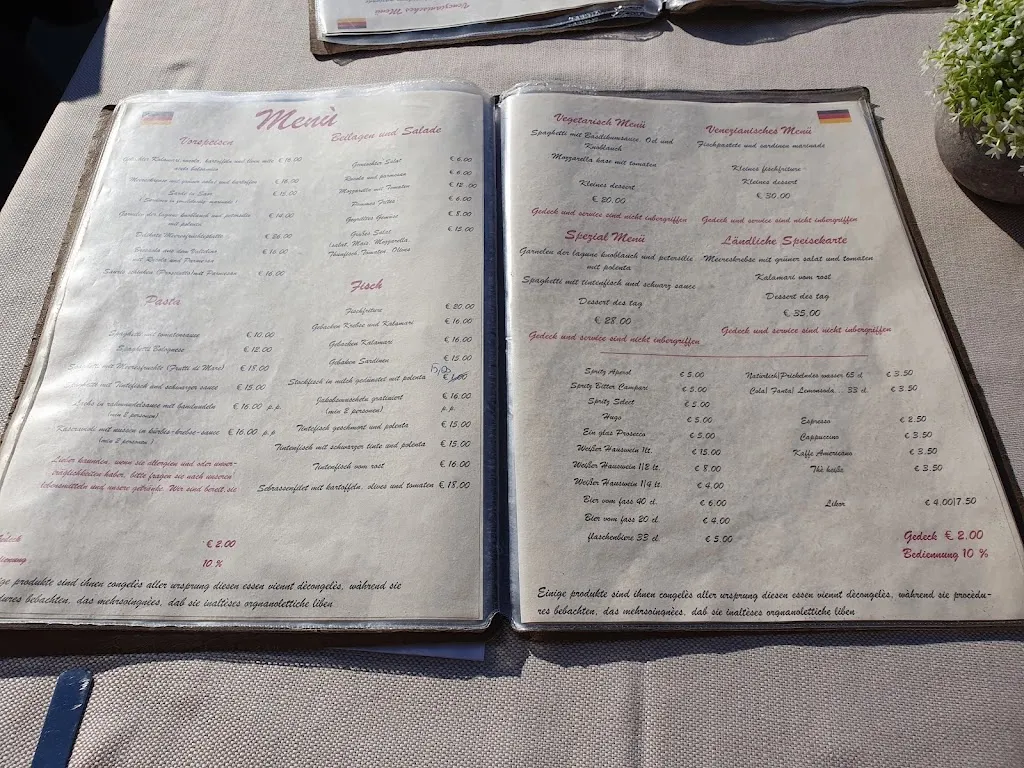 Venezianisches Menü
Menù
Vorspeisen
€ 16.00
Meeresfrüchte
€ 16.00
Sarde in Saor
€ 15.00
Garnelen der lagune knoblauch und petersilie
mit polenta
€ 26.00
€ 16.00
€ 16.00
Pasta
Spaghetti mit tomatensauce € 10.00
Spaghetti Bolognese € 12.00
(Frutti di Mare) € 18.00
mit Tintefisch und schwarzer sauce € 15.00
€ 16.00 p.p.
(min 2 personen)
mit nussen in kürbis-krebse-sauce € 16.00 p.p
(min 2 personen)
Lieber kunden, wenn sie allergien und oder unver-
träglichkeiten haber, bitte fragen sie nach unseren
lebensmitteln und unsere getränke. Wir sind bereit sie
€ 2.00
10 %
produkte sind ihnen congelès aller ursprung diesen essen viennt dècongelès, wàhrend sie
bebachten, das mehrsoingnèes, dab sie inaltèses orgnanolettiche liben
Beilagen und Salade
Gemischter Salat € 6.00
Rucola und parmesan € 6.00
Mozzarella mit Tomaten € 12.00
Pommes Frites € 6.00
Gegrilltes Gemüse € 8.00
Großes Salat € 15.00
(salat, Mais, Mozzarella,
Thunfisch, Tomaten, Oliven
Fisch
Fischfriture € 20.00
Gebacken Krebse und Kalamari € 16.00
Gebacken Kalamari € 16.00
Gebaken Sardinen € 15.00
Stockfisch in milch gedünstet mit polenta 15,00
Jakobsmuscheln gratiniert € 16.00
(min 2 personen) p.p.
Tintefisch geschmort und polenta € 15.00
Tintenfisch mit schwarzer tinte und polenta € 15.00
Tintenfisch vom rost € 16.00
Sebrassenfilet mit kartoffeln, olives und tomaten € 18.00
Vegetarisch Menü
Spaghetti mit Basilikumsauce, Oel und
Knoblauch
Mozzarella kase mit tomaten
Kleines dessert
€ 20.00
Gedeck und service sind nicht inbergriffen
Venezianisches Menü
Fischpastete und sardinen marinada
Kleines fischfriture
Kleines dessert
€ 30.00
Gedeck und service sind nicht inbergriffen
Spezial Menü
Garnelen der lagune knoblauch und petersilie
mit polenta
Spaghetti mit tintenfisch und schwarz sauce
Dessert des tag
€ 28.00
Gedeck und service sind nicht inbergriffen
Ländliche Speisekarte
Meereskrebse mit grüner salat und tomaten
Kalamari vom rost
Dessert des tag
€ 35.00
Gedeck und service sind nicht inbergriffen
Spritz Aperol € 5.00
Spritz Bitter Campari € 5.00
Spritz Select € 5.00
Hugo € 5.00
Ein glas Prosecco € 5.00
Weißer Hauswein 1lt. € 15.00
Weißer Hauswein 1|2 lt. € 8.00
Weißer Hauswein 1|4 lt. € 4.00
Bier vom fass 40 cl. € 6.00
Bier vom fass 20 cl. € 4.00
flaschenbiere 33 cl. € 5.00
Natürlich|Prichelndes wasser 65 cl € 3.50
Cola| Fanta| Lemonsoda... 33 cl. € 3.50
Espresso € 2.50
Cappuccino € 3.50
Kaffe Americano € 3.50
Thè heiße € 3.50
Likor € 4.00|7.50
Gedeck € 2.00
Bediennung 10 %
Einige produkte sind ihnen congelès aller ursprung diesen essen viennt dècongelès, wàhrend sie procèdu-
res bebachten, das mehrsoingnèes, dab sie inaltèses orgnanolettiche liben